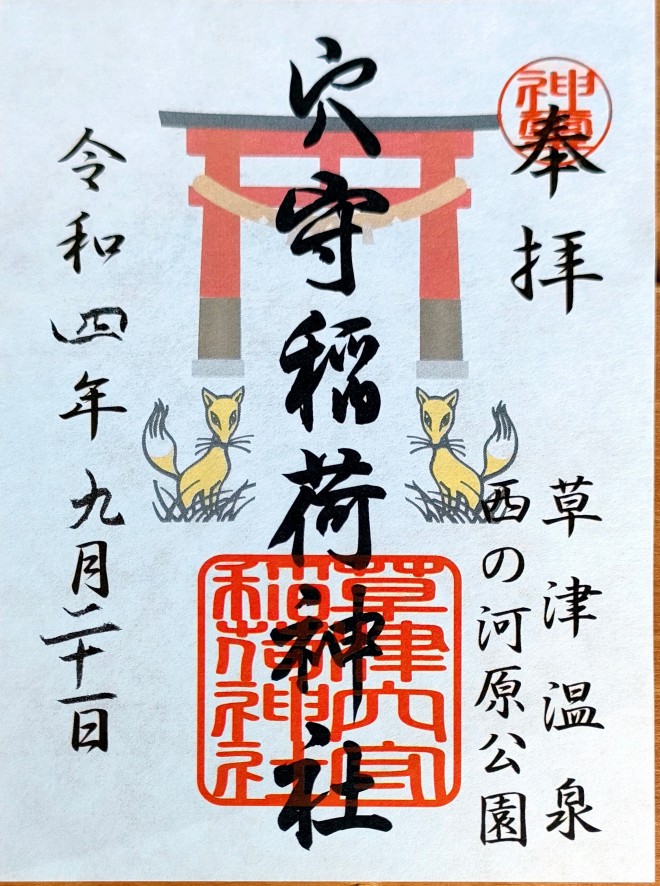 奉拝
草津温泉
西の河原公園
穴守稲荷神社
草津穴守
稲荷神社
令和四年九月二十一日